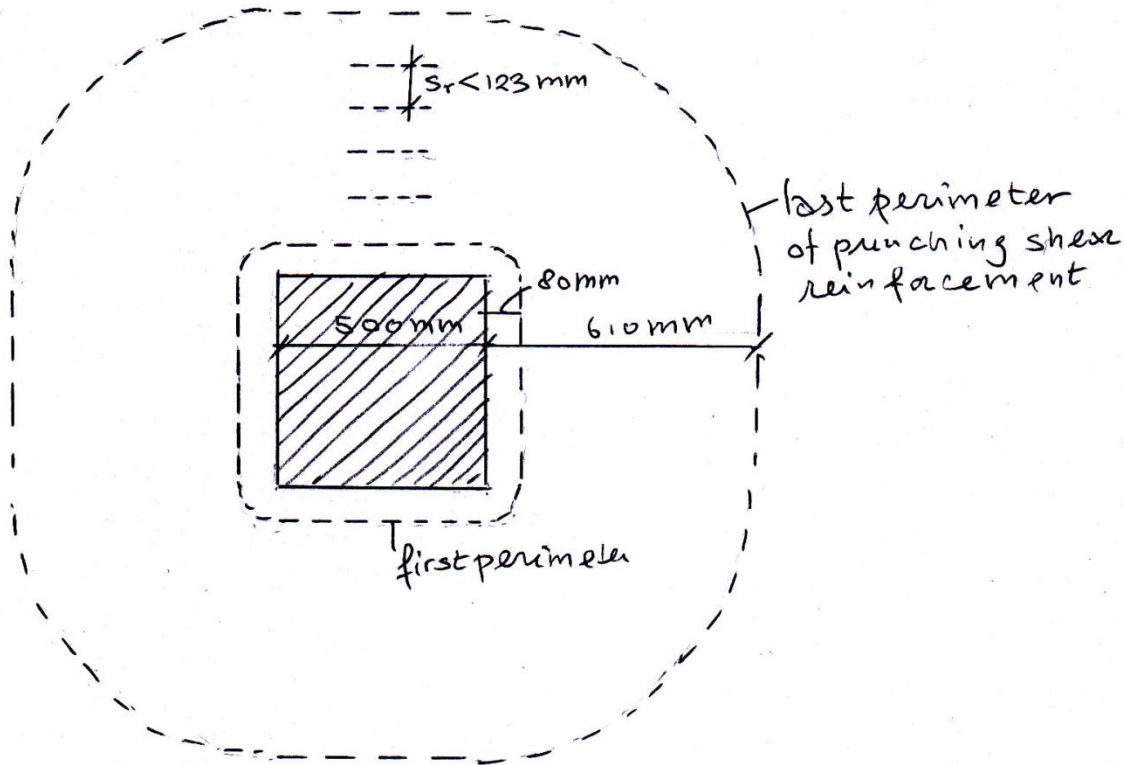 Sr<123mm
last perimeter
of punching shear
reinforcement
80mm
500mm
610mm
first perimeter